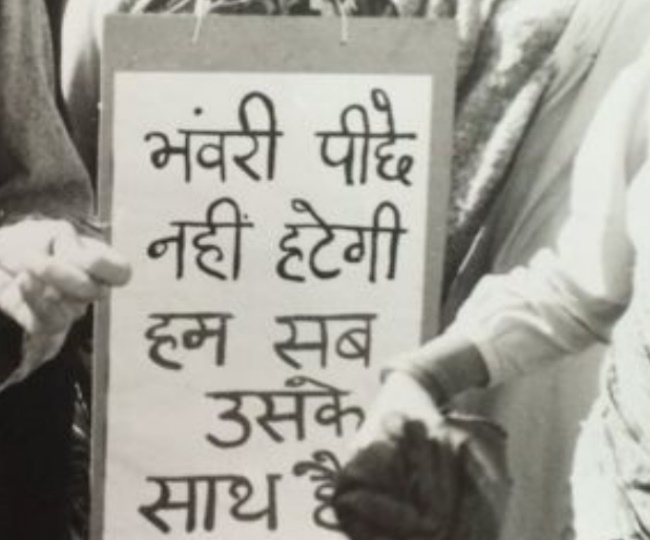 भंवरी पीछे
नहीं हटेगी
हम सब
उसके
साथ है